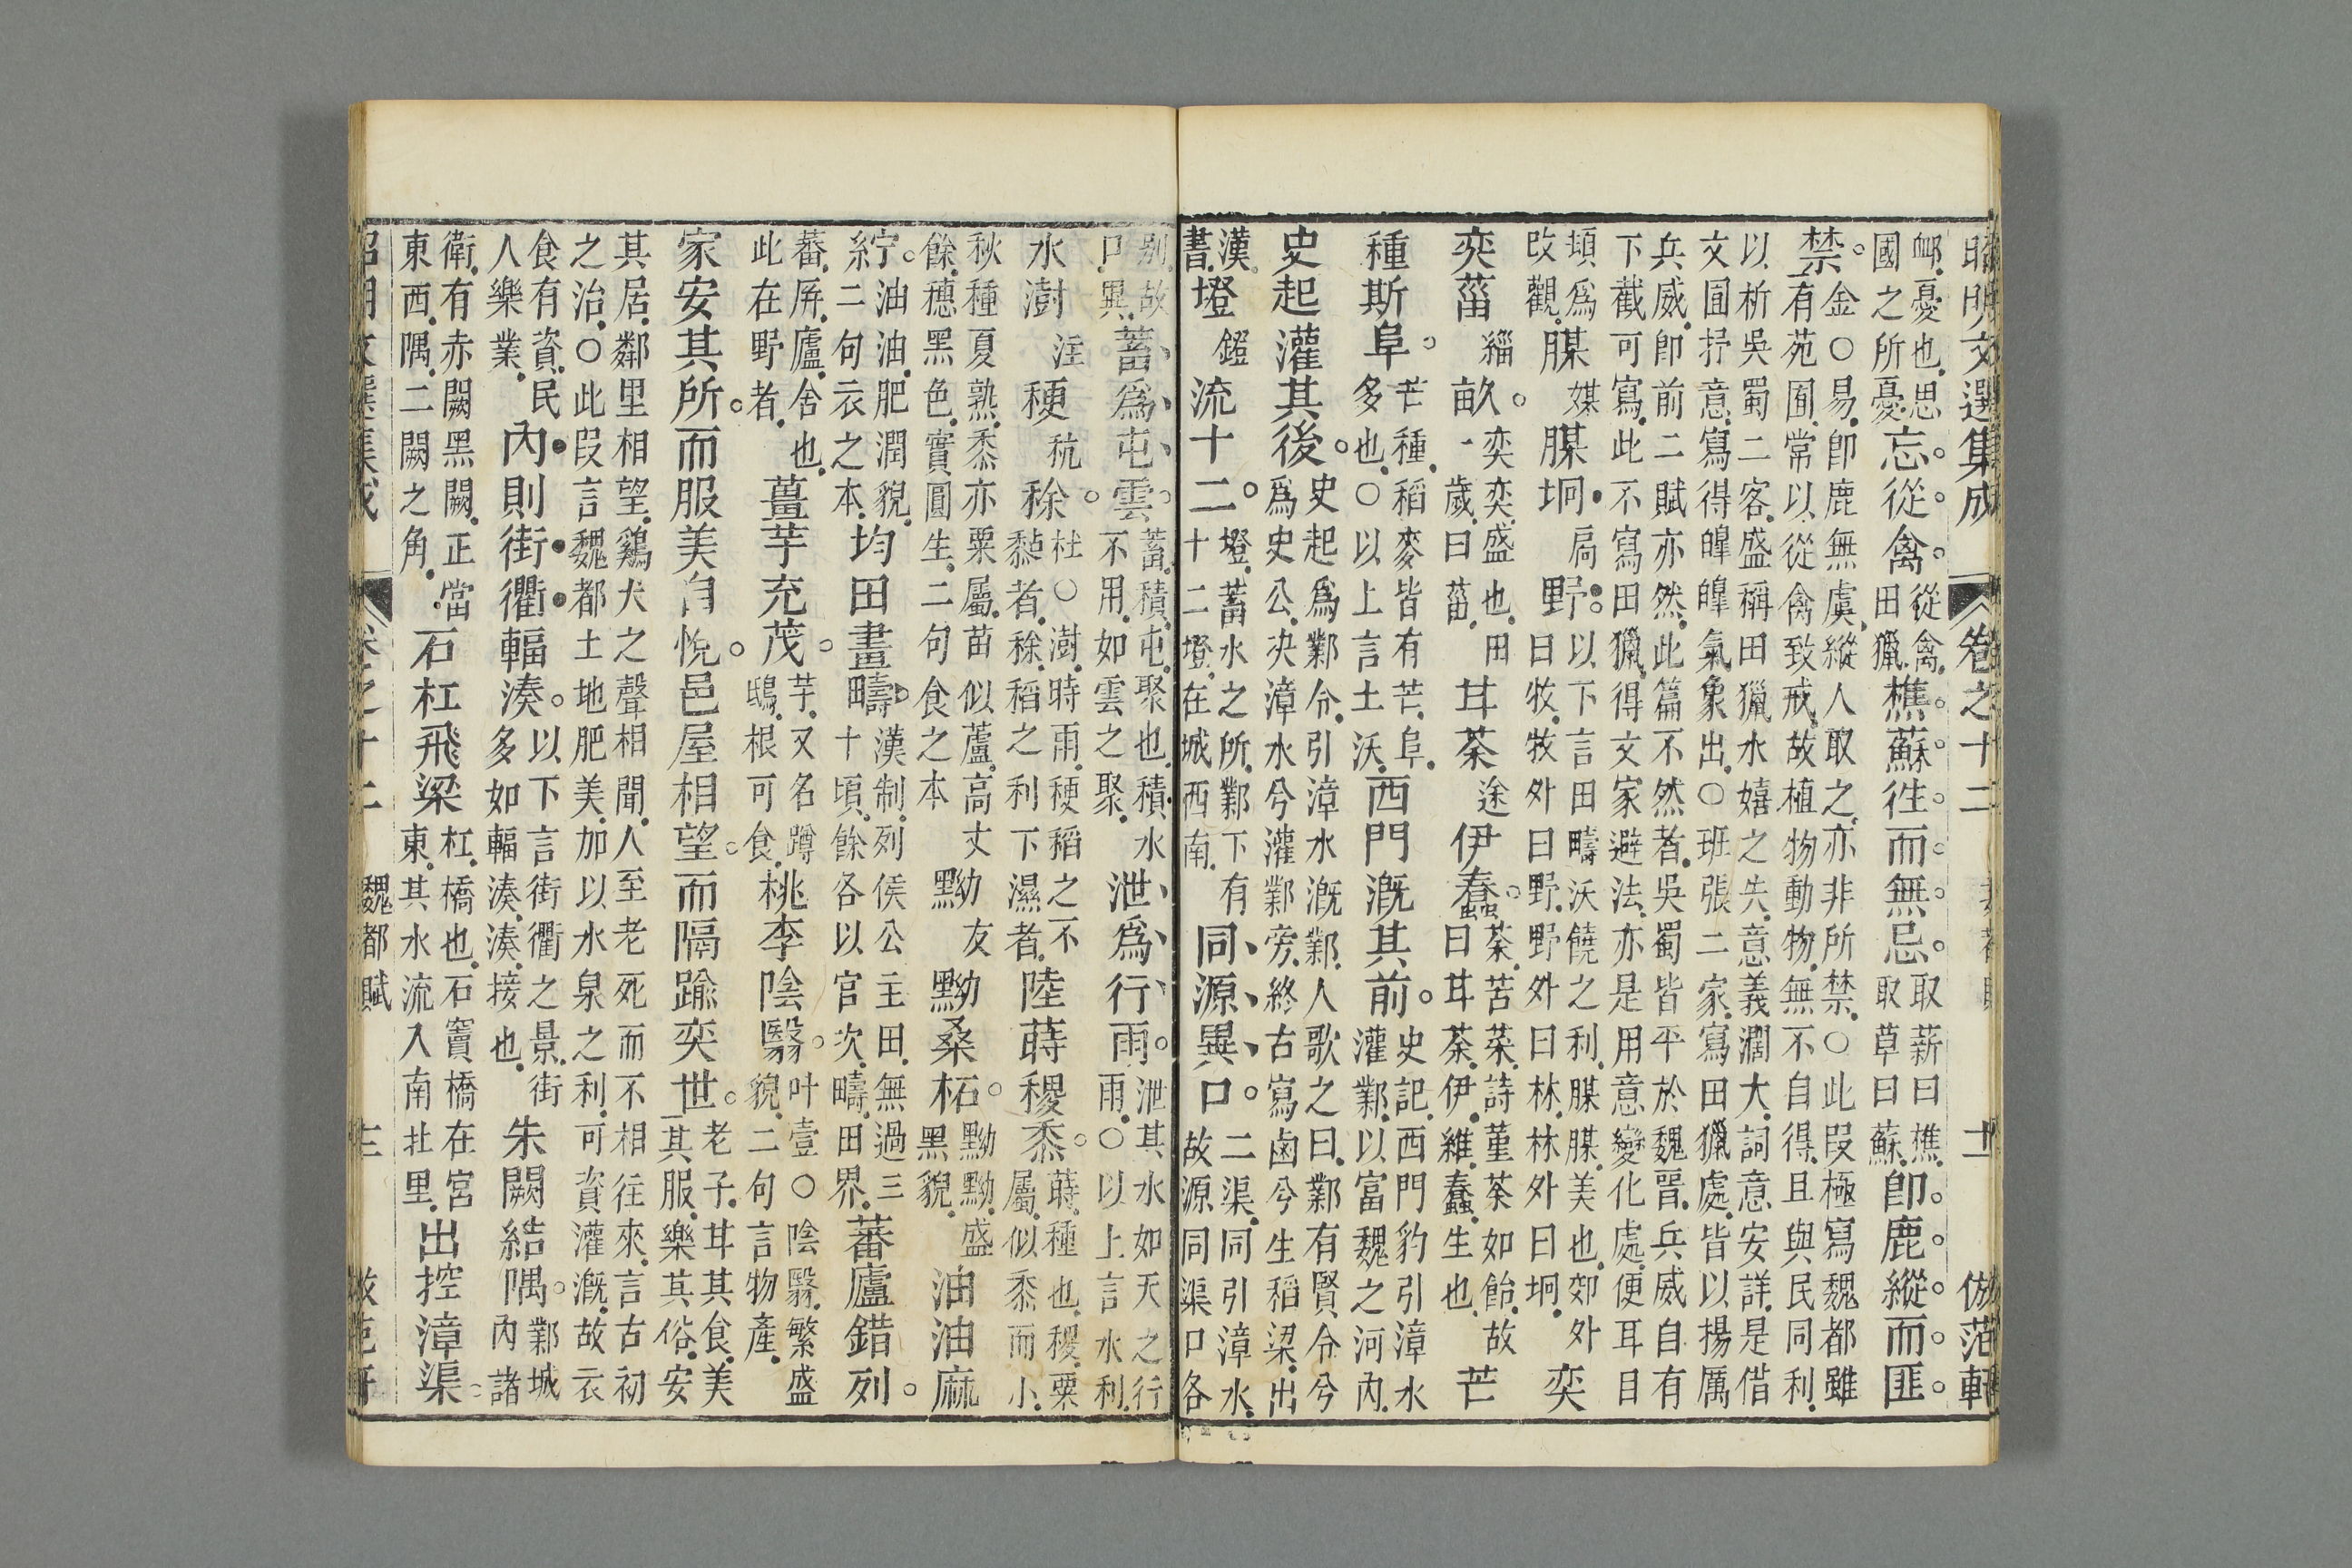 昭明文選集成 卷之十二 十一 倣范軒
卹憂也思國之所憂忘從禽從禽田獵樵蘇徃而無忌取薪曰樵取草曰蘇卽鹿縱而匪
禁金〇易卽鹿無虞縱人取之亦非所禁〇此段極寫魏都雖有苑囿常以從禽致戒故植物動物無不自得且與民同利
以析吳蜀二客盛稱田獵水嬉之失意義濶大詞意安詳是借文囿抒意寫得皥皥氣象出〇班張二家寫田獵處皆以揚厲
兵威卽前二賦亦然此篇不然者吳蜀皆平於魏晉兵威自有下截可寫此不寫田獵得文家避法亦是用意變化處便耳目
頓爲改觀腜媒腜坰扃野以下言田疇沃饒之利腜腜美也郊外曰牧牧外曰野野外曰林林外曰坰奕
奕菑緇畝奕奕盛也田一歲曰菑甘荼途伊蠢荼苦菜詩菫荼如飴故曰甘荼伊維蠢生也芒
種斯阜芒種稻麥皆有芒阜多也〇以上言土沃西門漑其前史記西門豹引漳水灌鄴以富魏之河內
史起灌其後史起爲鄴令引漳水漑鄴人歌之曰鄴有賢令兮爲史公决漳水兮灌鄴旁終古寫鹵兮生稻梁出
漢書墱鐙流十二墱蓄水之所鄴下有十二墱在城西南同源異口二渠同引漳水故源同渠口各
別故口異蓄爲屯雲蓄積屯聚也積水不用如雲之聚泄爲行雨泄其水如天之行雨〇以上言水利
水澍注稉秔稌杜〇澍時雨稉稻之不黏者稌稻之利下濕者陸蒔稷黍蒔種也稷粟屬似黍而小
秋種夏熟黍亦粟屬苗似蘆高丈餘穗黑色實圓生二句食之本黝友黝桑柘黝黝盛黑貌油油麻
紵油油肥潤貌紵二句衣之本均田畫疇漢制列侯公主田無過三十頃餘各以官次疇田界蕃廬錯列
蕃屏廬舍也此在野者薑芋充茂芋又名蹲鴟根可食桃李陰翳叶壹〇陰翳繁盛貌二句言物產
家安其所而服美自悅邑屋相望而隔踰奕世老子甘其食美其服樂其俗安
其居鄰里相望鷄犬之聲相聞人至老死而不相往來言古初之治〇此段言魏都土地肥美加以水泉之利可資灌漑故衣
食有資民人樂業內則街衢輻湊以下言街衢之景街多如輻湊湊接也朱闕結隅鄴城內諸
衛有赤闕黑闕正當東西隅二闕之角石杠飛梁杠橋也石竇橋在宮東其水流入南北里出控漳渠
卷之十二 魏都賦